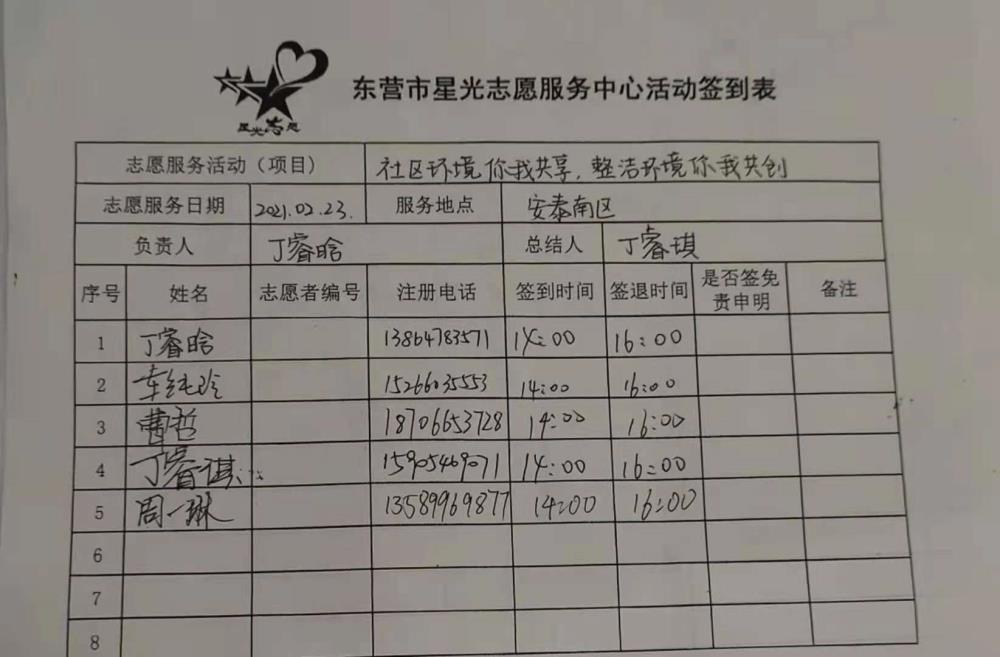 星光志愿
东营市星光志愿服务中心活动签到表
志愿服务活动（项目） 社区环境你我共享，整洁环境你我共创
志愿服务日期 2021.02.23. 服务地点 安泰南区
负责人 丁睿晗 总结人 丁睿琪
序号 姓名 志愿者编号 注册电话 签到时间 签退时间 是否签免责申明 备注
1 丁睿晗 13864783571 14:00 16:00
2 车纯玲 15266035553 14:00 16:00
3 曹哲 18706653728 14:00 16:00
4 丁睿琪 15905469071 14:00 16:00
5 周一琳 13589969877 14:00 16:00
6
7
8